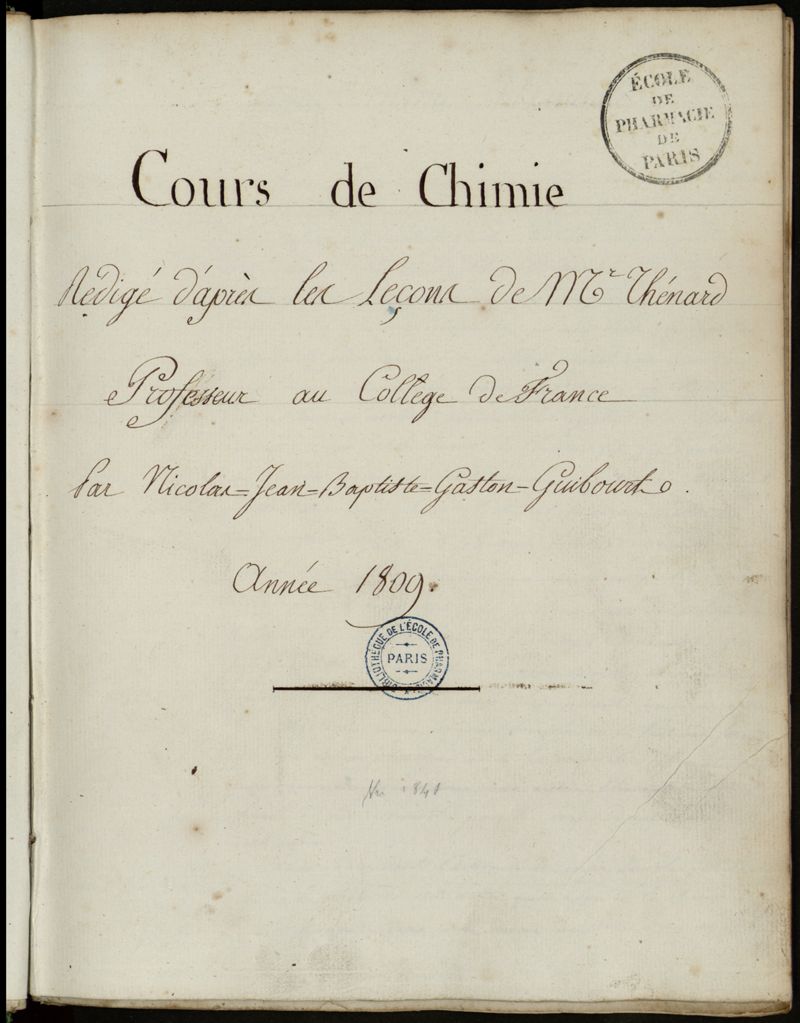 ÉCOLE
DE
PHARMACIE
DE
PARIS
Cours de Chimie
Rédigé d'après les Leçons de Mr Thénard
Professeur au Collège de France
Par Nicolas=Jean=Baptiste=Gaston=Guibourt.
Année 1809.
BIBLIOTHÈQUE DE L'ÉCOLE DE PHARMACIE
PARIS